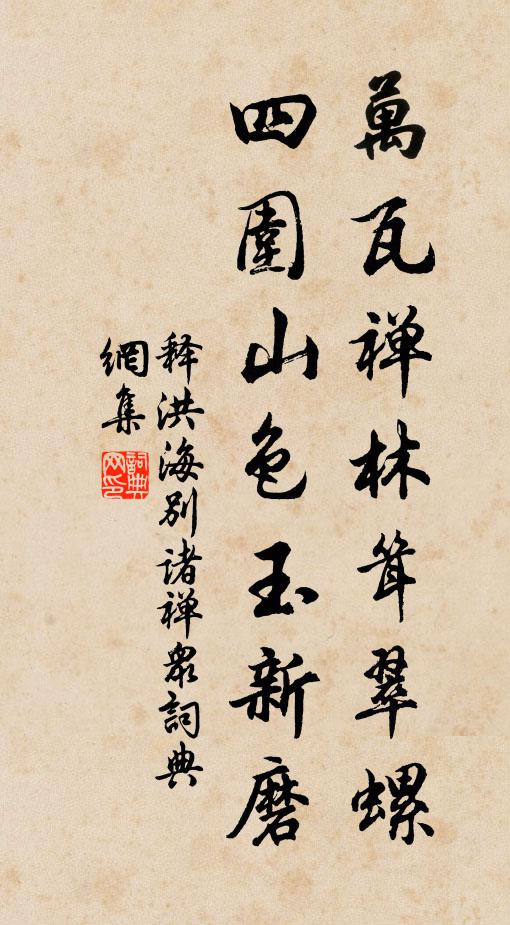 萬瓦禅林耸翠螺
四圍山色玉新磨
释洪海别诸禅衆詞典
網集
詞典
网印